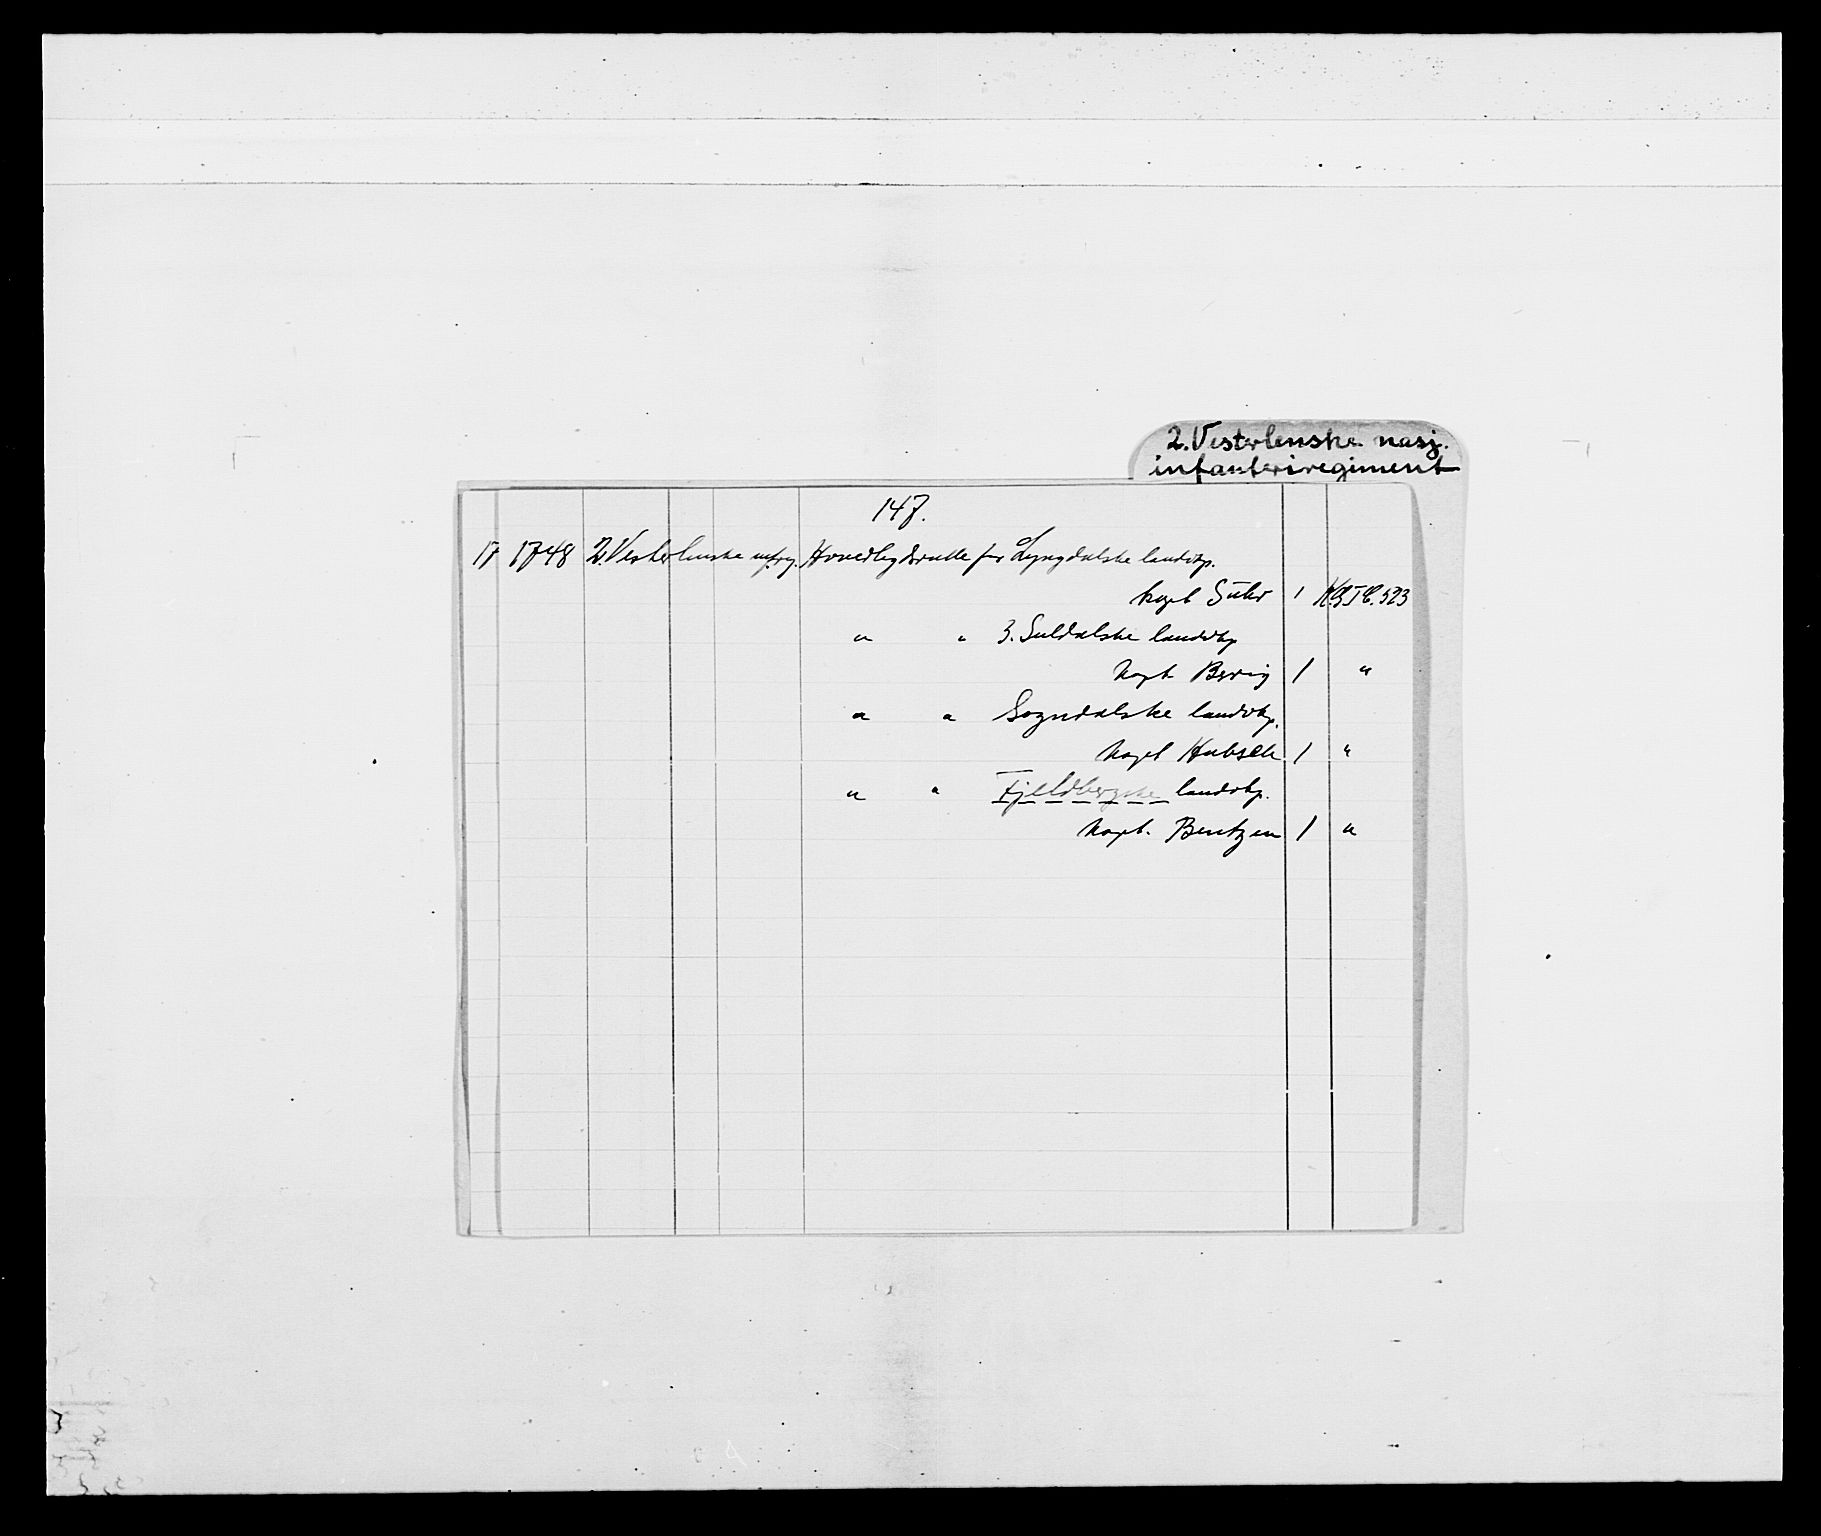 2. Vesterlenske nasj.
infanteriregiment
147.
17 1748 2. Vesterlenske inf.rg. Hovedlegdsrulle for Lyngdalske landvkp.
kapt Suhr 1 KGIC.523
" " 3. Suldalske landvkp
kapt Bering 1 "
" " Sogndalske landvkp.
kapt Hubsch 1 "
" " Fjeldbergske landvkp.
kapt. Bentzen 1 "